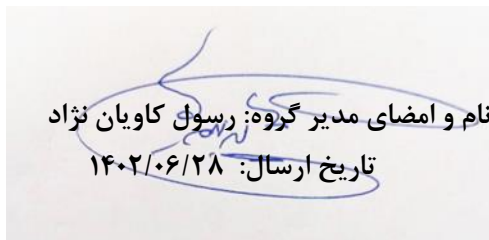 نام و امضای مدیر گروه: رسول کاویان نژاد
تاریخ ارسال: ۱۴۰۲/۰۶/۲۸